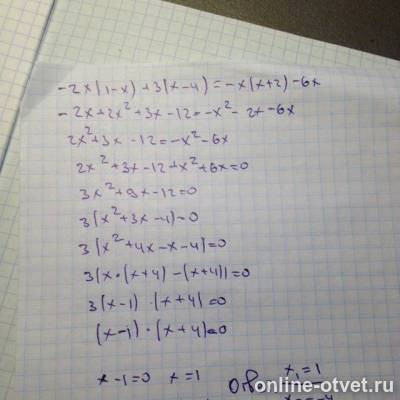 -2x(1-x)+3(x-4)=-x(x+2)-6x
-2x+2x²+3x-12=-x²-2x-6x
2x²+3x-12=-x²-6x
2x²+3x-12+x²+6x=0
3x²+9x-12=0
3(x²+3x-4)=0
3(x²+4x-x-4)=0
3(x·(x+4)-(x+4))=0
3(x-1)·(x+4)=0
(x-1)·(x+4)=0
x-1=0 x=1 x₁=1
online-otvet.ru